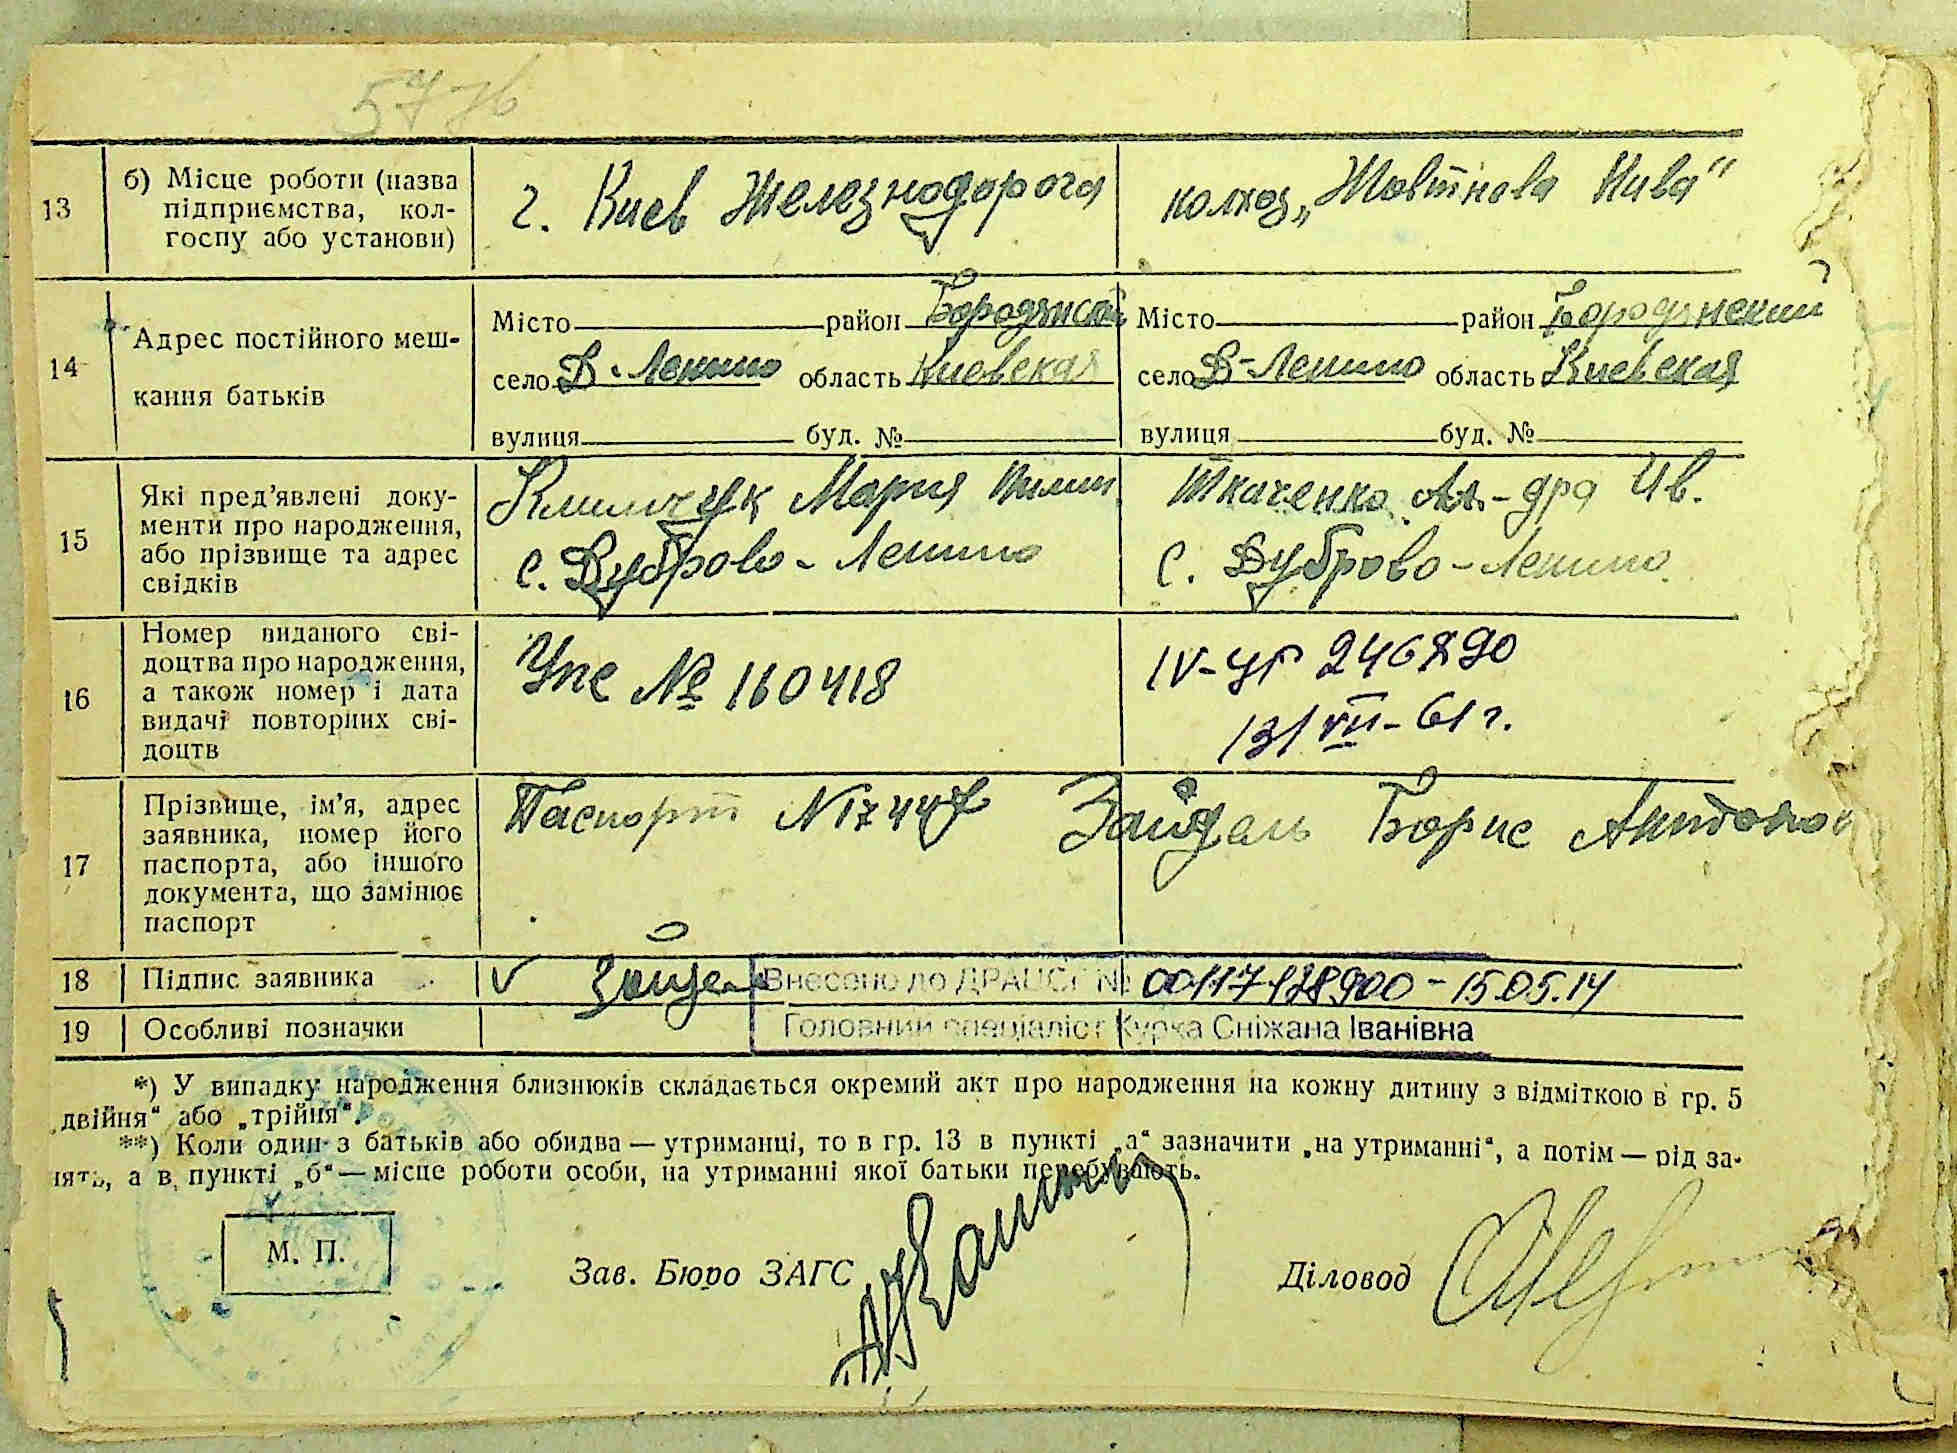 577b
13
б) Місце роботи (назва
підприємства, кол-
госпу або установи)
г. Киев Железнодорога
колхоз „Жовтнева Нива“
14
Адрес постійного меш-
кання батьків
Місто район Бородянский
село Д-Ленино область Киевская
вулиця буд. №
Місто район Бородянский
село Д-Ленино область Киевская
вулиця буд. №
15
Які пред’явлені доку-
менти про народження,
або прізвище та адрес
свідків
Климчук Мария
с. Дуброво-Ленино
Ткаченко Ал-дра Ив.
с. Дуброво-Ленино
16
Номер виданого сві-
доцтва про народження,
а також номер і дата
видачі повторних сві-
доцтв
№ 160418
31 VII-61 г.
17
Прізвище, ім’я, адрес
заявника, номер його
паспорта, або іншого
документа, що замінює
паспорт
Паспорт N 17447 Зайдаль Борис Антонов
18
Підпис заявника
V
Внесено до ДРАЦСГ № 00117128900 - 15.05.14
19
Особливі позначки
Головний спеціаліст Курка Сніжана Іванівна
*) У випадку народження близнюків складається окремий акт про народження на кожну дитину з відміткою в гр. 5
„двійня“ або „трійня“.
**) Коли один з батьків або обидва — утриманці, то в гр. 13 в пункті „а“ зазначити „на утриманні“, а потім — рід за-
нять, а в пункті „б“ — місце роботи особи, на утриманні якої батьки перебувають.
М. П.
Зав. Бюро ЗАГС
Діловод